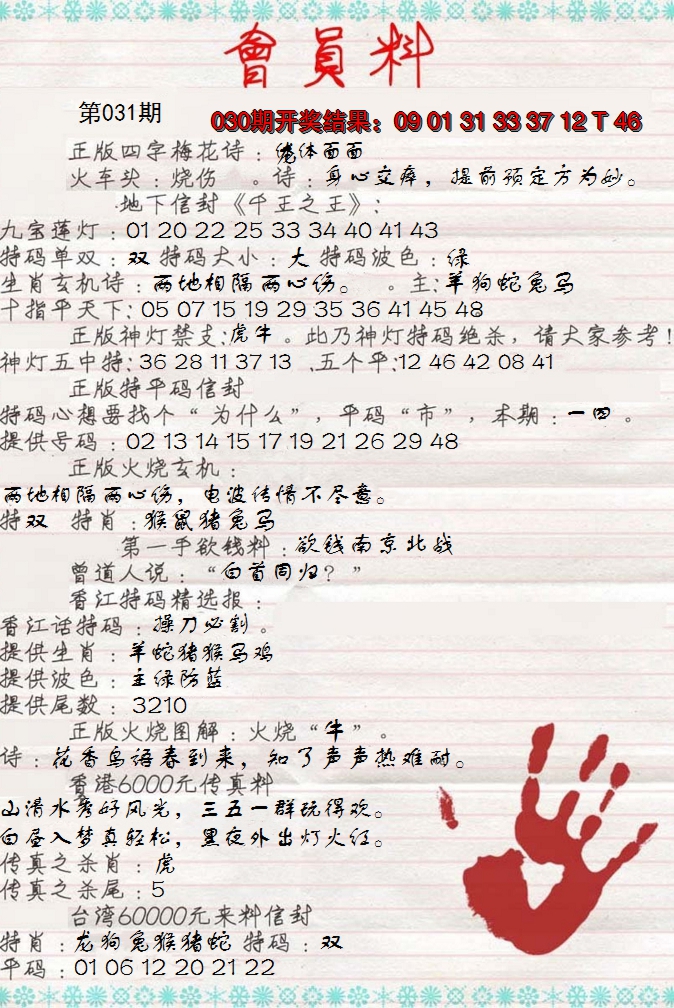 會員料
第031期
030期开奖结果：09 01 31 33 37 12 T 46
正版四字梅花诗：体面面
火车头：烧伤 。诗：身心交瘁，提前预定方为妙。
地下信封《千王之王》：
九宝莲灯：01 20 22 25 33 34 40 41 43
特码单双：双 特码大小：大 特码波色：绿
生肖玄机诗：两地相隔两心伤。 。主：羊狗蛇兔马
十指平天下：05 07 15 19 29 35 36 41 45 48
正版神灯禁支：虎牛 。此乃神灯特码绝杀，请大家参考！
神灯五中特：36 28 11 37 13 、五个平：12 46 42 08 41
正版特平码信封
特码心想要找个“为什么”，平码“市”，本期：一四 。
提供号码：02 13 14 15 17 19 21 26 29 48
正版火烧玄机：
两地相隔两心伤，电波传情不尽意。
特双 特肖：猴鼠猪兔马
第一手欲钱料：欲钱南京北战
曾道人说：“白首同归？”
香江特码精选报：
香江话特码：操刀必割。
提供生肖：羊蛇猪猴马鸡
提供波色：主绿防蓝
提供尾数：3210
正版火烧图解：火烧“牛”。
诗：花香鸟语春到来，知了声声热难耐。
香港6000元传真料
山清水秀好风光，三五一群玩得欢。
白昼入梦真轻松，黑夜外出灯火红。
传真之杀肖：虎
传真之杀尾：5
台湾60000元来料信封
特肖：龙狗兔猴猪蛇 特码：双
平码：01 06 12 20 21 22